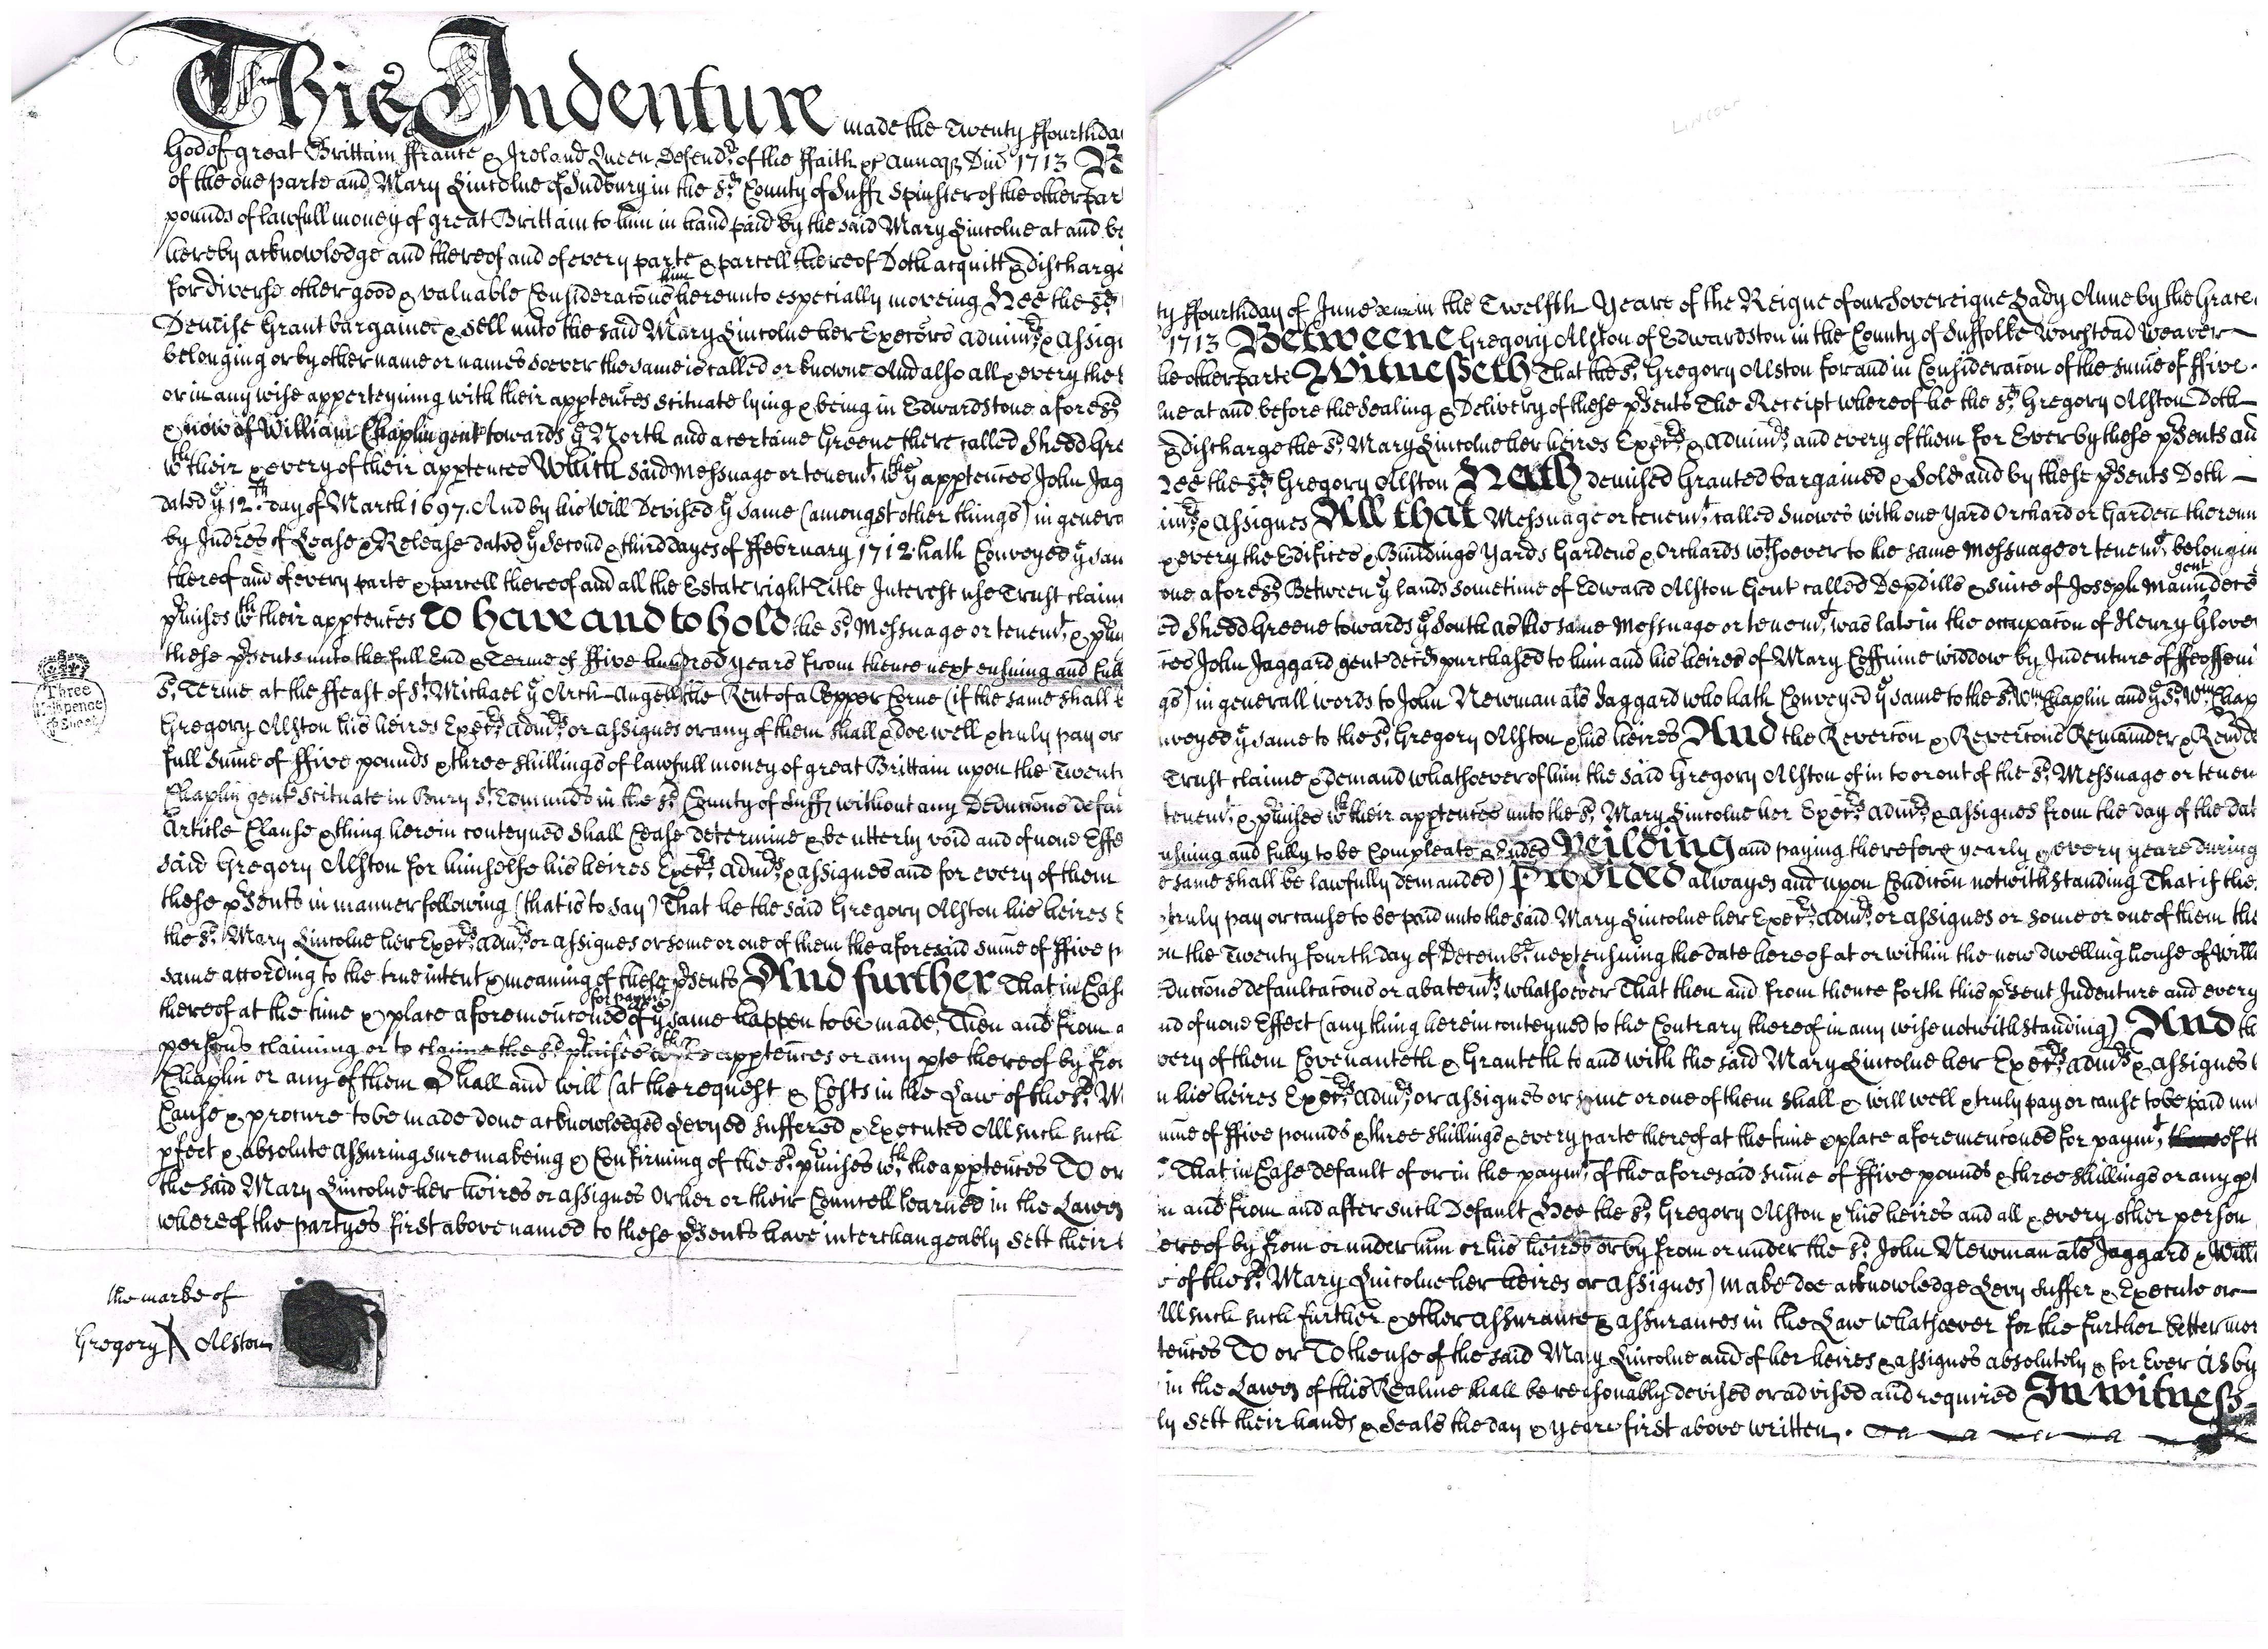 This Indenture made the Twenty ffourth da
God of great Brittain ffrance & Ireland Queen Defendr. of the ffaith &c Annoq3 Dm̄ 1713 Be
of the one parte and Mary Lincolne of Sudbury in the sd. County of Suff Spinster of the other par
pounds of lawfull money of great Brittain to him in hand paid by the said Mary Lincolne at and be
hereby acknowledge and thereof and of every parte & parcell thereof Doth acquitt & discharge
for diverse other good & valuable Consideracōns him hereunto especially moveing Hee the sd.
Demise Grant bargaine & Sell unto the said Mary Lincolne her Execrs. Adminrs. & Assig
belonging or by other name or names soever the same is called or knowne And also all & every the
or in any wise apperteyning with their appertēnces scituate lying & being in Edwardstone aforesd.
& now of William Chaplin gent towards ye North and a certaine Greene there called Shedd Gre
wth their & every of their apptences Which said Messuage or tenemt. wth ye apptences John Jag
dated ye 12th. day of March 1697. And by his Will Devised ye same (amongst other things) in genera
by Indres of Lease & Release dated ye Second & third dayes of ffebruary 1712 hath Conveyed ye sam
thereof and of every parte & parcell thereof and all the Estate right Title Interest use Trust claim
pmises wth their apptences To have and to hold the sd. Messuage or tenemt. & pm
these psents unto the full End & Terme of ffive hundred years from thence next ensuing and full
sd. Terme at the ffeast of St. Michael ye Arch-Angell the Rent of a Pepper Corne (if the same shall b
Gregory Alston his heires Execrs. Admrs. or assignes or any of them shall & doe well & truly pay or
full sume of ffive pounds & three shillings of lawfull money of great Brittain upon the Twent
Chaplin gent scituate in Bury St. Edmunds in the sd. County of Suff without any Deducōns defal
Article Clause & thing herein conteyned shall Cease determine & be utterly void and of none Effe
said Gregory Alston for himselfe his heires Execrs. Admrs. & assignes and for every of them
these psents in manner following (that is to say) That he the said Gregory Alston his heires E
the sd. Mary Lincolne her Execrs. Admrs. or assignes or some or one of them the aforesaid sume of ffive p
same according to the true intent & meaning of these psents And further That in Cas
thereof at the time & place aforemencōned for paymt. of ye same happen to be made, Then and from a
persons claiming or to claime the sd. pmises wth the apptences or any pte thereof by fro
Chaplin or any of them Shall and will (at the request & Costs in the Law of the sd. M
Cause & procure to be made done acknowledged Levyed suffered & Executed All such such
pfect & absolute assuring sure makeing & Confirming of the sd. pmises wth the apptences To or
the said Mary Lincolne her heires or assignes Or her or their Councell learned in the Lawes
whereof the partyes first above named to these psents have interchangeably sett their
Three
pence
Sheet
the marke of
Gregory X Alston
Lincoln
ty ffourth day of June in the Twelfth Yeare of the Reigne of our Sovereigne Lady Anne by the Grace
1713 Betweene Gregory Alston of Edwardston in the County of Suffolke Worstead Weaver
he other parte Witnesseth That the sd. Gregory Alston for and in Consideracōn of the sume of ffive
lne at and before the Sealing & Delivery of these psents The Receipt whereof he the sd. Gregory Alston Doth
& discharge the sd. Mary Lincolne her heires Execrs. & Adminrs. and every of them for Ever by these psents an
Hee the sd. Gregory Alston Hath demised Granted bargained & Sold and by these psents Doth
inrs. & Assignes All that Messuage or tenemt. called Snowes with one Yard Orchard or Garden thereun
& every the Edifices & Buildings Yards Gardens & Orchards wtsoever to the same Messuage or tenemt. belongin
one aforesd. Between ye lands sometime of Edward Alston Gent called Depdills & since of Joseph Maun gent dece
ed Shedd Greene towards ye South as the same Messuage or tenemt. was late in the occupacōn of Henry Glove
ces John Jaggard gent decd. purchased to him and his heires of Mary Coffuine widdow by Indenture of ffeoffem
gs) in generall words to John Newman als Jaggard who hath Conveyed ye same to the sd. Wm. Chaplin and ye sd. Wm. Chap
nveyed ye same to the sd. Gregory Alston & his heires And the Revercōn & Revercōns Remainder & Remde
Trust claime & demand whatsoever of him the said Gregory Alston of in to or out of the sd. Messuage or tenem
tenemt. & pmises wth their apptences unto the sd. Mary Lincolne her Execrs. Admrs. & assignes from the day of the dat
nsuing and fully to be Compleate & Ended Yeilding and paying therefore yearly & every yeare during
e same shall be lawfully demanded) Provided alwayes and upon Condicōn notwithstanding That if the
truly pay or cause to be paid unto the said Mary Lincolne her Execrs. Admrs. or assignes or some or one of them the
on the Twenty fourth day of Decembr. next ensuing the date hereof at or within the now dwelling house of Will
ducōns defaultacōns or abatemts. whatsoever That then and from thence forth this psent Indenture and every
nd of none Effect (any thing herein conteyned to the Contrary thereof in any wise notwithstanding) And th
very of them Covenanteth & Granteth to and with the said Mary Lincolne her Execrs. Admrs. & assignes
n his heires Execrs. Admrs. or assignes or some or one of them shall & will well & truly pay or cause to be paid un
ume of ffive pounds & three shillings & every parte thereof at the time & place aforemencōned for paymt. of th
That in Case default of or in the paymt. of the aforesaid sume of ffive pounds & three shillings or any pt
n and from and after such Default Hee the sd. Gregory Alston & his heires and all & every other person
ereof by from or under him or his heires or by from or under the sd. John Newman als Jaggard & Will
of the sd. Mary Lincolne her heires or assignes) make doe acknowledge Levy suffer & Execute or
All such such further & other assurance & assurances in the Law whatsoever for the further better mor
tences To or To the use of the said Mary Lincolne and of her heires & assignes absolutely & for Ever As by
in the Lawes of this Realme shall be reasonably devised or advised and required In witness
ly sett their hands & Seals the day & yeare first above written.